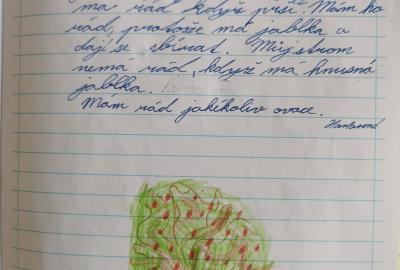 ma rád když prší. Mám ho
rád, protože má jablka a
dají se sbírat. Můj strom
nemá rád, když má hnusná
jablka.
Mám rád jakíkoliv ovoce.